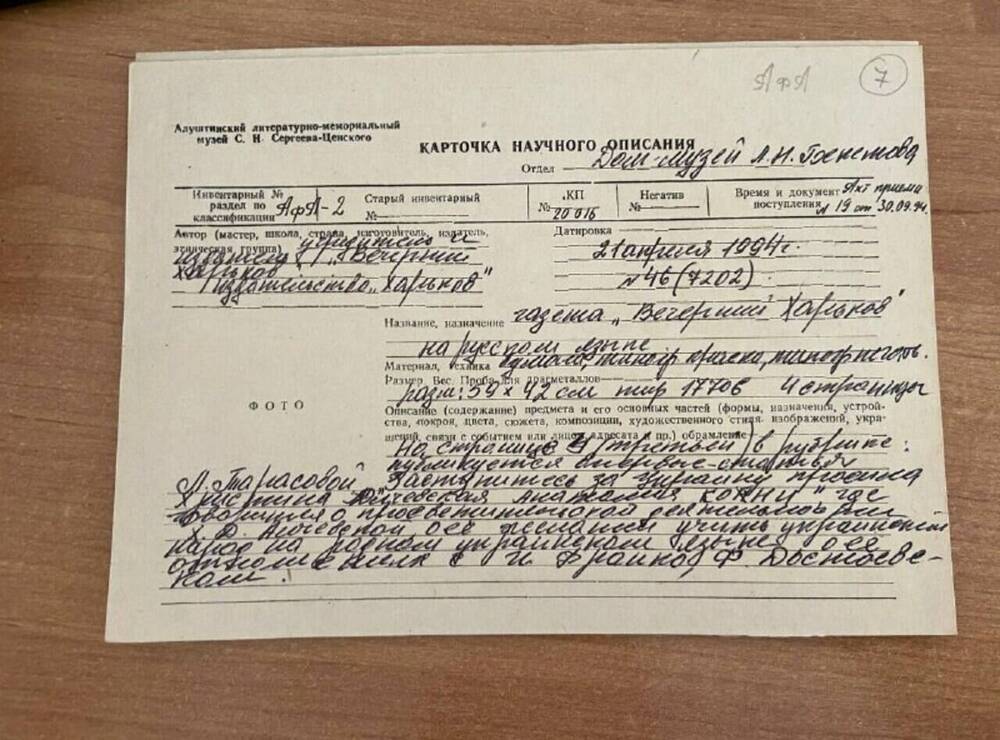 АФЛ 7
Алуштинский литературно-мемориальный
музей С. Н. Сергеева-Ценского
КАРТОЧКА НАУЧНОГО ОПИСАНИЯ
Отдел Дом-музей А.Н. Бекетова
Инвентарный № раздел по классификации АФЛ-2
Старый инвентарный №
КП № 20 016
Негатив №
Время и документ поступления Акт приема № 19 от 30.09.94.
Автор (мастер, школа, страна, изготовитель, издатель,
этническая группа) учредитель и
издатель „Вечерний
Харьков"
Издательство „Харьков"
Датировка
21 апреля 1994 г.
№ 46 (7202)
Название, назначение газета „Вечерний Харьков"
на русском языке
Материал, техника бумага, типогр. краска, типогр. изготов.
Размер Вес. Проба для драгметаллов
разм: 59 × 42 см тир 17706 4 страницы
ФОТО
Описание (содержание) предмета и его основных частей (формы, назначения, устрой-
ства, покроя, цвета, сюжета, композиции, художественного стиля изображений, укра-
шений, связи с событием или лицом, адресата и пр.) обрамление
На странице 3 (третьей) в рубрике:
публикуется впервые - статья
Л. Тарасовой „Заступитесь за Украину просила
Христина Алчевская" где
говорится о просветительской деятельности
Х. Д. Алчевской, её желании учить украинский
народ на родном украинском языке, о её
с И. Франко, Ф. Достоевс-
ким.